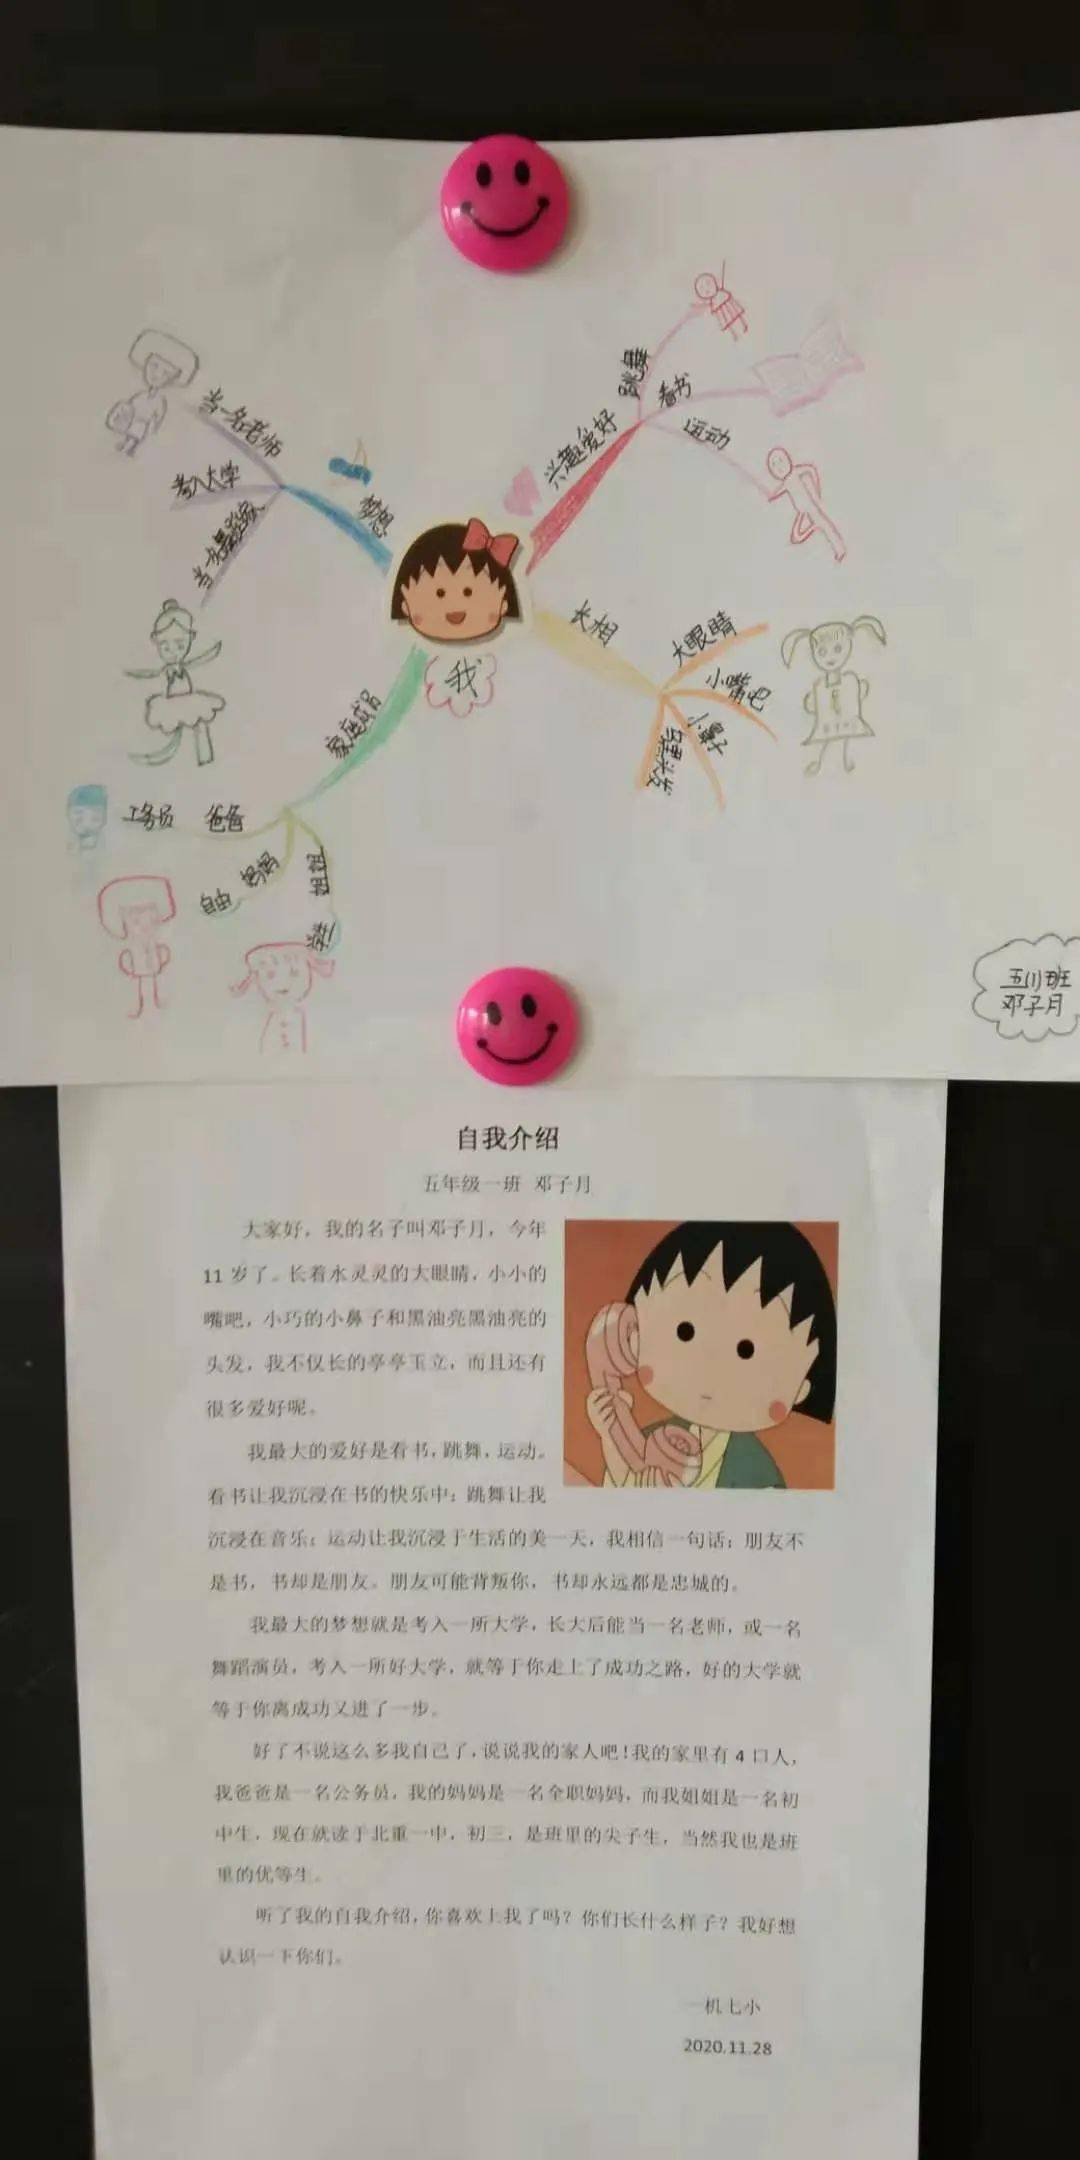 跳舞
看书
运动
兴趣爱好
当一名老师
考入大学
梦想
长相
大眼睛
小嘴巴
小鼻子
乌黑头发
我
家庭成员
爸爸
妈妈
自由
姐姐
五(1)班
邓子月
自我介绍
五年级一班 邓子月
大家好，我的名子叫邓子月，今年
11 岁了。长着水灵灵的大眼睛，小小的
嘴吧，小巧的小鼻子和黑油亮黑油亮的
头发，我不仅长的亭亭玉立，而且还有
很多爱好呢。
我最大的爱好是看书，跳舞，运动。
看书让我沉浸在书的快乐中；跳舞让我
沉浸在音乐；运动让我沉浸于生活的美一天，我相信一句话；朋友不
是书，书却是朋友。朋友可能背叛你，书却永远都是忠城的。
我最大的梦想就是考入一所大学，长大后能当一名老师，或一名
舞蹈演员，考入一所好大学，就等于你走上了成功之路，好的大学就
等于你离成功又进了一步。
好了不说这么多我自己了，说说我的家人吧！我的家里有 4 口人，
我爸爸是一名公务员，我的妈妈是一名全职妈妈，而我姐姐是一名初
中生，现在就读于北重一中，初三，是班里的尖子生，当然我也是班
里的优等生。
听了我的自我介绍，你喜欢上我了吗？你们长什么样子？我好想
认识一下你们。
一机七小
2020.11.28